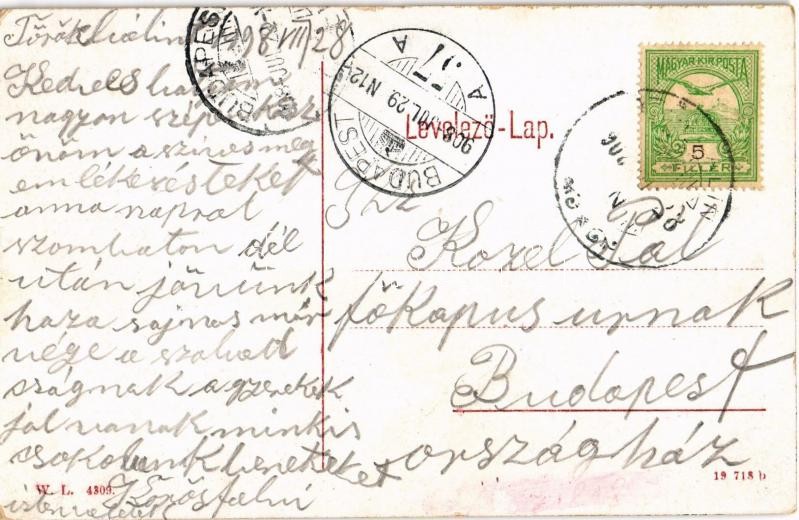 Törökbálint 908 VII/28
Kedves
nagyon szépen kösz
önöm a szives meg
emlékezésteket
anna napral
szombaton dél
után jövünk
haza sajnos már
vége a szabad
ságnak a gyerekek
jól vanak minkis
csokolunk beneteket
W. L. 4309.
BUDAPEST
BUDAPEST
908 JUL. 29 N12
A
A
Levelező-Lap.
MAGYAR KIR. POSTA
5
FILLÉR
Kozel Pál
főkapus urnak
Budapest
országház
19 718 b